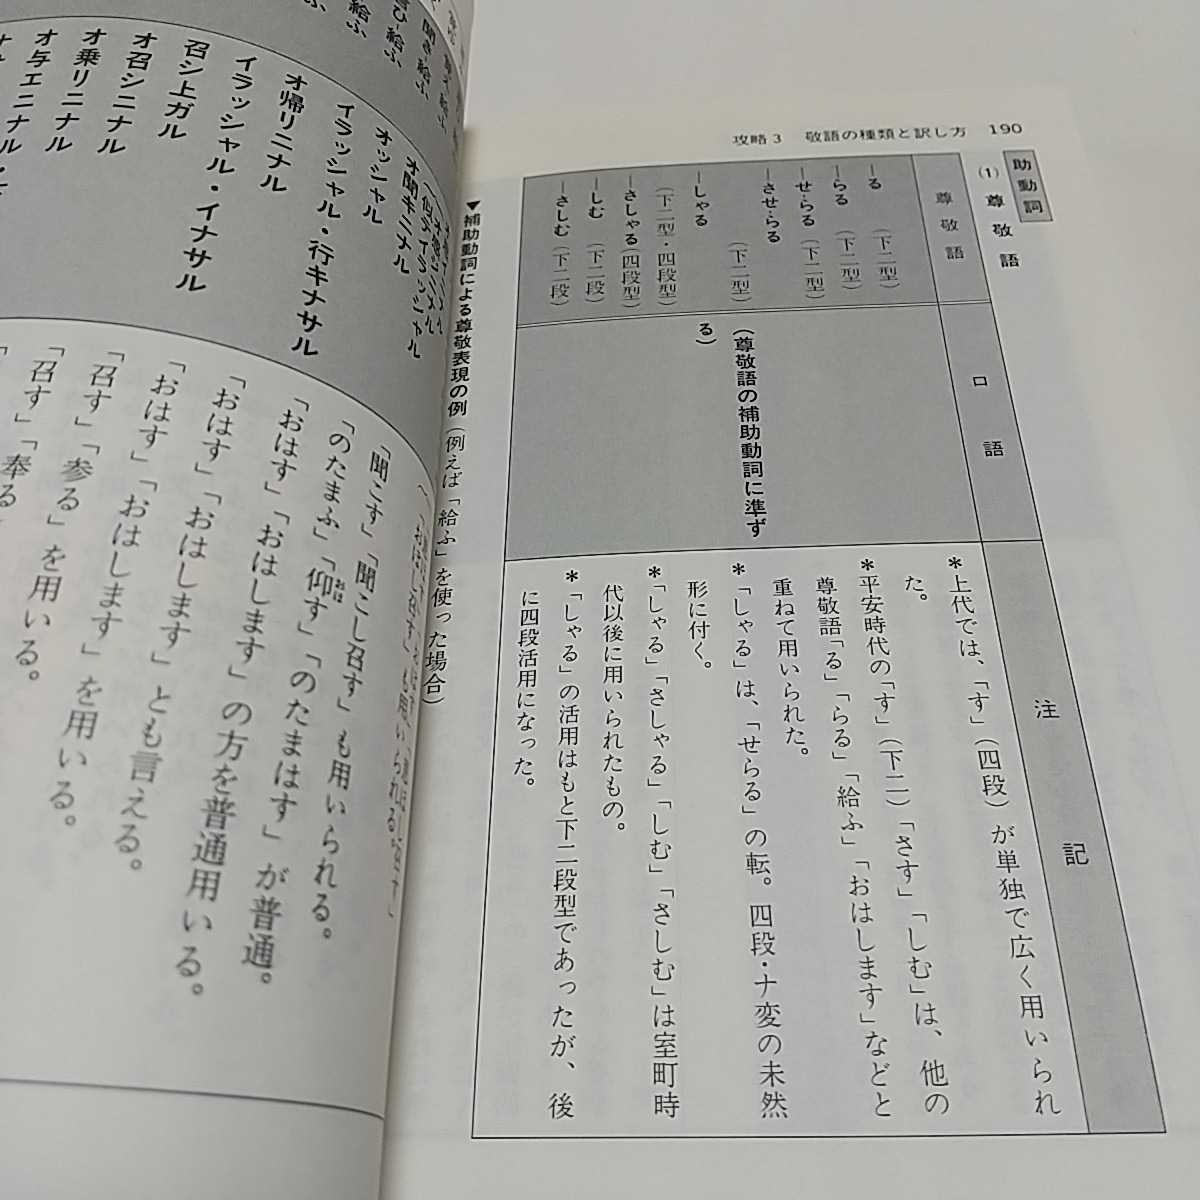 攻略3 敬語の種類と訳し方 190
助動詞
(1) 尊敬語
尊敬語
―る (下二型)
―らる (下二型)
―せ・らる (下二型)
―させ・らる
(下二型)
―しゃる
(下二型・四段型)
―さしゃる(四段型)
―しむ (下二段)
―さしむ (下二段)
口語
(尊敬語の補助動詞に準ず
る)
注記
*上代では、「す」(四段)が単独で広く用いられ
た。
*平安時代の「す」(下二)「さす」「しむ」は、他の
尊敬語「る」「らる」「給ふ」「おはします」などと
重ねて用いられた。
*「しゃる」は、「せらる」の転。四段・ナ変の未然
形に付く。
*「しゃる」「さしゃる」「しむ」「さしむ」は室町時
代以後に用いられたもの。
*「しゃる」の活用はもと下二段型であったが、後
に四段活用になった。
▼補助動詞による尊敬表現の例(例えば「給ふ」を使った場合)
聞き給ふ
言ひ給ふ
給ふ
オ聞キニナル
オッシャル
イラッシャル・行キナサル
オ帰リニナル
イラッシャル・イナサル
召シ上ガル
オ召シニナル
オ乗リニナル
オ与エニナル
「聞こす」「聞こし召す」も用いられる。
「のたまふ」「仰す」「のたまはす」が普通。
おほ
「おはす」「おはします」の方を普通用いる。
「おはす」「おはします」とも言える。
「おはす」「おはします」を用いる。
「召す」「参る」を用いる。
「召す」「奉る